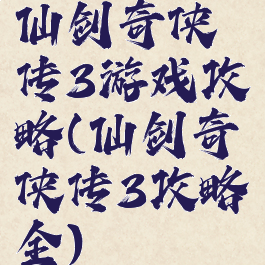 仙剑奇侠
传3游戏攻
略(仙剑奇
侠传3攻略
全)